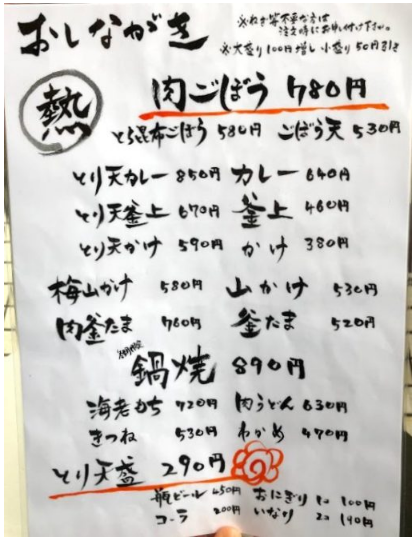 おしながき
※ねぎ等不要な方は
注文時にお申し付け下さい。
※大盛り100円増し 小盛り50円引き
熱
肉ごぼう 780円
とろ昆布ごぼう 580円 ごぼう天 530円
とり天カレー 850円 カレー 640円
とり天釜上 670円 釜上 460円
とり天かけ 590円 かけ 380円
梅山かけ 580円 山かけ 530円
肉釜たま 760円 釜たま 520円
鍋焼 890円
海老もち 720円 肉うどん 630円
きつね 530円 わかめ 470円
とり天盛 290円
瓶ビール 450円 おにぎり 1コ 100円
コーラ 200円 いなり 2コ 140円